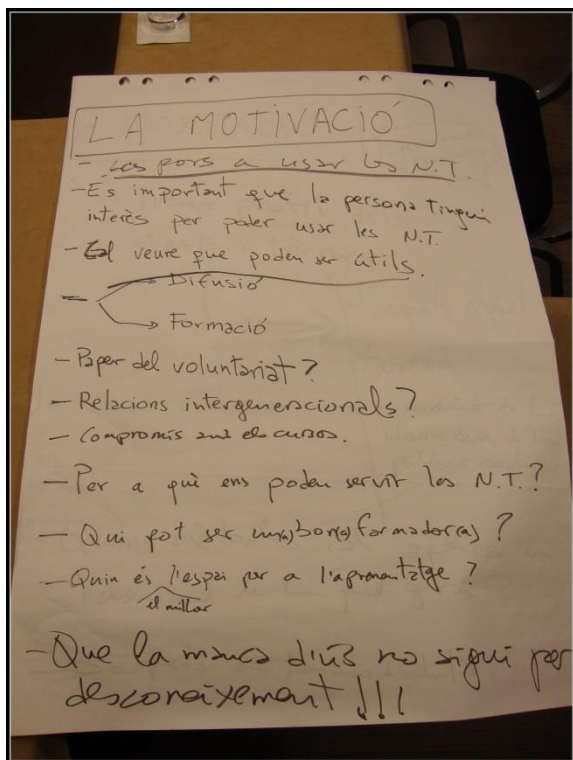 LA MOTIVACIÓ
- Les pors a usar les N.T.
- És important que la persona tingui
interès per poder usar les N.T.
- El veure que poden ser útils.
- → Difusió
→ Formació
- Paper del voluntariat?
- Relacions intergeneracionals?
- Compromís amb els cursos.
- Per a què ens poden servir les N.T.?
- Qui pot ser un(a) bon(a) formador(a)?
- Quin és l'espai per a l'aprenentatge?
el millor
- Que la manca d'ús no sigui per
desconeixement!!!